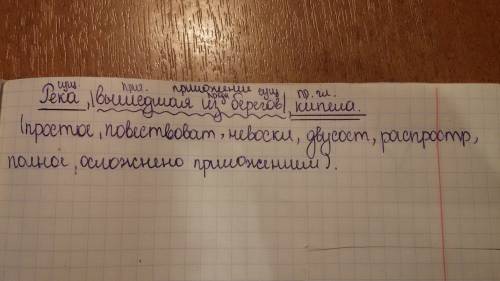 сущ. прич. приложение предл. сущ. гл.
Река, |вышедшая из берегов|, кипела.
(простое, повествоват, невоскл, двусост, распростр,
полное, осложнено приложением).